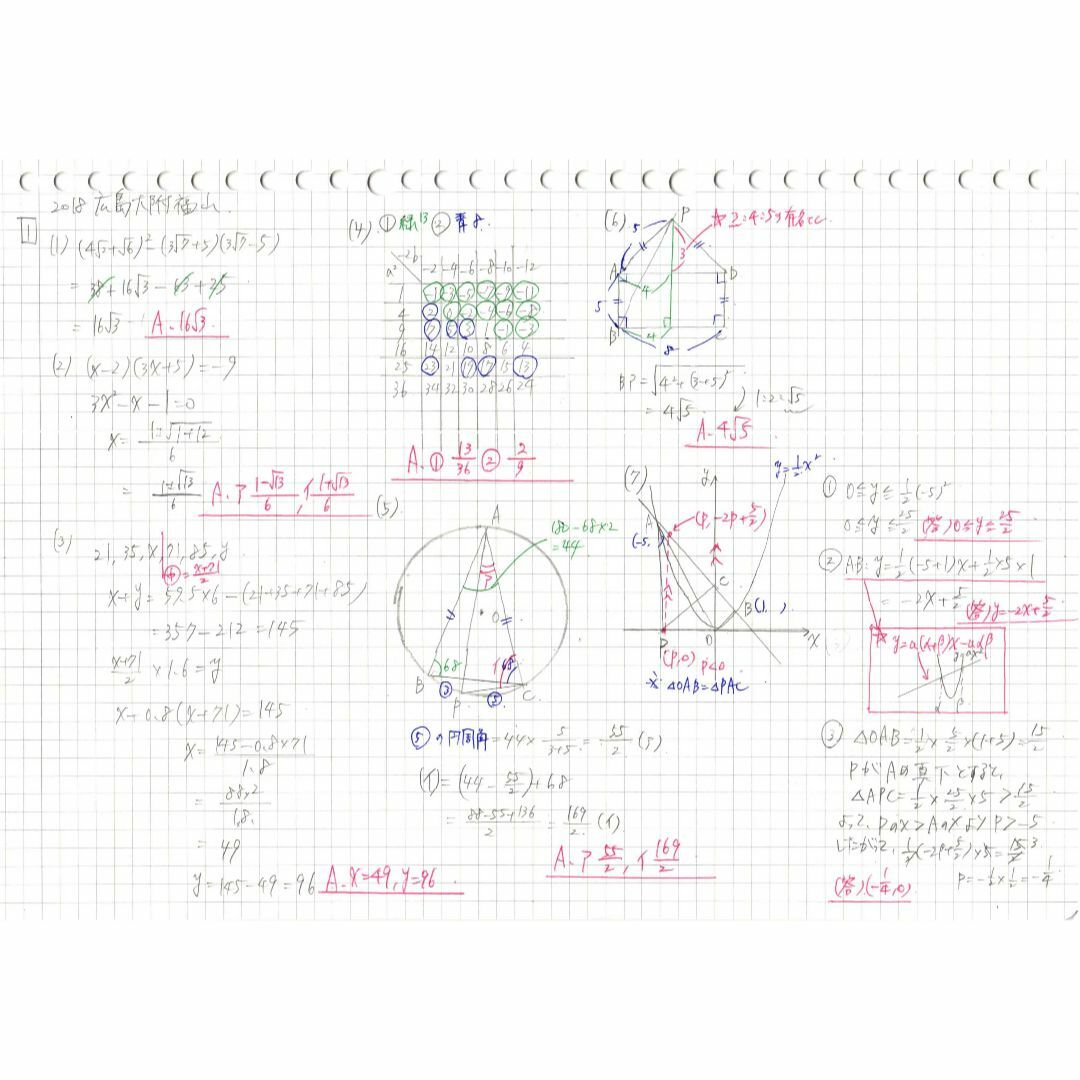 2018 広島大附福山
1
(1) (4√2+√6)² - (3√7+5)(3√7-5)
= 38+16√3-63+25
= 16√3
A. 16√3
(2) (x-2)(3x+5)=-9
3x²-x-1=0
x= 1±√1+12 / 6
= 1±√13 / 6
A. ア 1-√13 / 6, イ 1+√13 / 6
(3)
21, 35, x, 71, 85, y
㊥= x+71 / 2
x+y = 59.5×6-(21+35+71+85)
= 357-212=145
x+71 / 2 ×1.6=y
x+0.8(x+71)=145
x= 145-0.8×71 / 1.8
= 88.2 / 1.8
= 49
y=145-49=96
A. x=49, y=96
(4) ① 緑13 ② 青8
a² -2b -2 -4 -6 -8 -10 -12
1 -1 -3 -5 -7 -9 -11
4 2 0 -2 -4 -6 -8
9 7 5 3 1 -1 -3
16 14 12 10 8 6 4
25 23 21 19 17 15 13
36 34 32 30 28 26 24
A. ① 13/36 ② 2/9
(5)
A
180-68×2
=44
ア
O
68
イ
68
B
C
P
③
⑤
⑤の円周角=44× 5 / 3+5 = 55/2 (ア)
(イ)=(44- 55/2)+68
= 88-55+136 / 2 = 169/2 (イ)
A. ア 55/2, イ 169/2
(6)
P
5
3
A
4
D
5
B
4
C
8
BP=√4²+(3+5)²
= 4√5
1:2:√5
A. 4√5
(7)
y
y=½x²
A
(p, -2p+5/2)
(-5, )
C
B(1, )
O
x
P
(p,0) p<0
※ △OAB=△PAC
① 0≦y≦½(-5)²
0≦y≦25/2
(答) 0≦y≦25/2
② AB: y=½(-5+1)x+½×5×1
= -2x+5/2
(答) y=-2x+5/2
y=a(α+β)x-aαβ
y=ax²
α β
③ △OAB=½×5/2×(1+5)=15/2
PがAの真下とすると、
△APC=½×25/2×5>15/2
よって、Pのx>Aのxより p>-5
したがって、½×(-2p+5/2)×5=15/2
p=-½×½=-¼
(答) (-¼, 0)